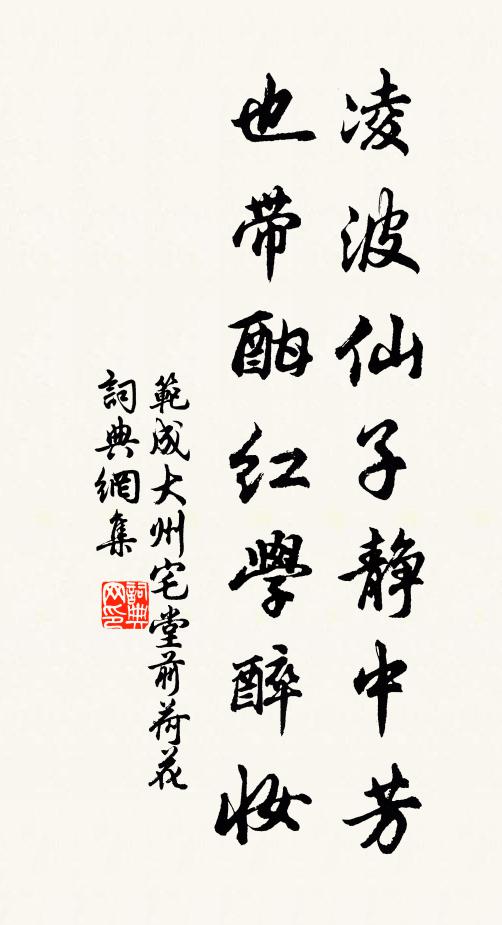 凌波仙子静中芳
也带酣红學醉妆
範成大州宅堂前荷花
詞典網集
詞典网印